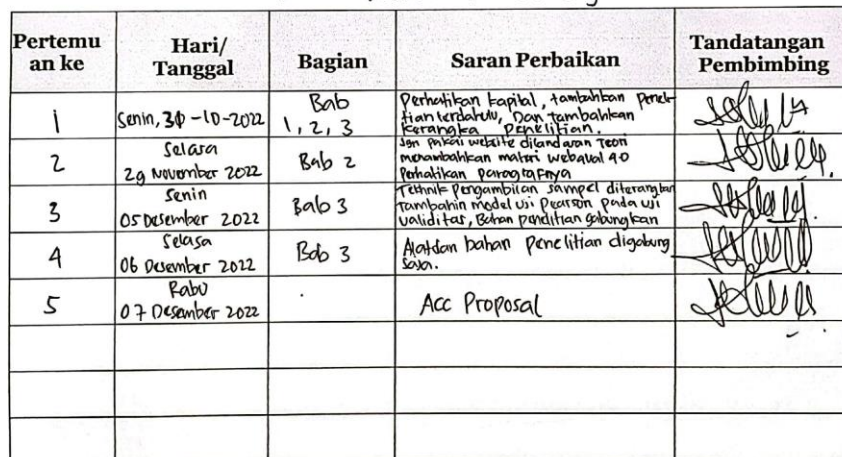 Pertemu
an ke
Hari/
Tanggal
Bagian
Saran Perbaikan
Tandatangan
Pembimbing
1
Senin, 30 -10-2022
Bab
1, 2, 3
Perhatikan kapital, tambahkan penel-
itian terdahulu, Dan tambahkan
kerangka penelitian.
2
Selasa
29 November 2022
Bab 2
Jgn pakai website dilandasan Teori
menambahkan materi webqual 4.0
Perhatikan paragrafnya
3
Senin
05 Desember 2022
Bab 3
Tehnik pengambilan sampel diterangkan
Tambahin model uji Pearson pada uji
validitas, Bahan penelitian gabungkan
4
Selasa
06 Desember 2022
Bab 3
Alat dan bahan penelitian digabung
saja.
5
Rabu
07 Desember 2022
Acc Proposal